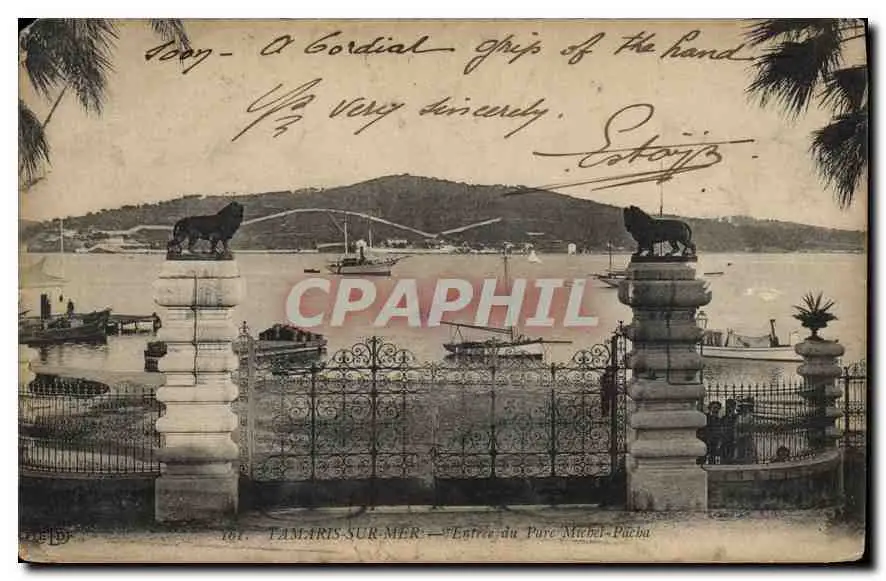 Soon - A Cordial grip of the hand
Very sincerely.
CPAPHIL
161. TAMARIS-SUR-MER. — Entrée du Parc Michel-Pacha
ELD